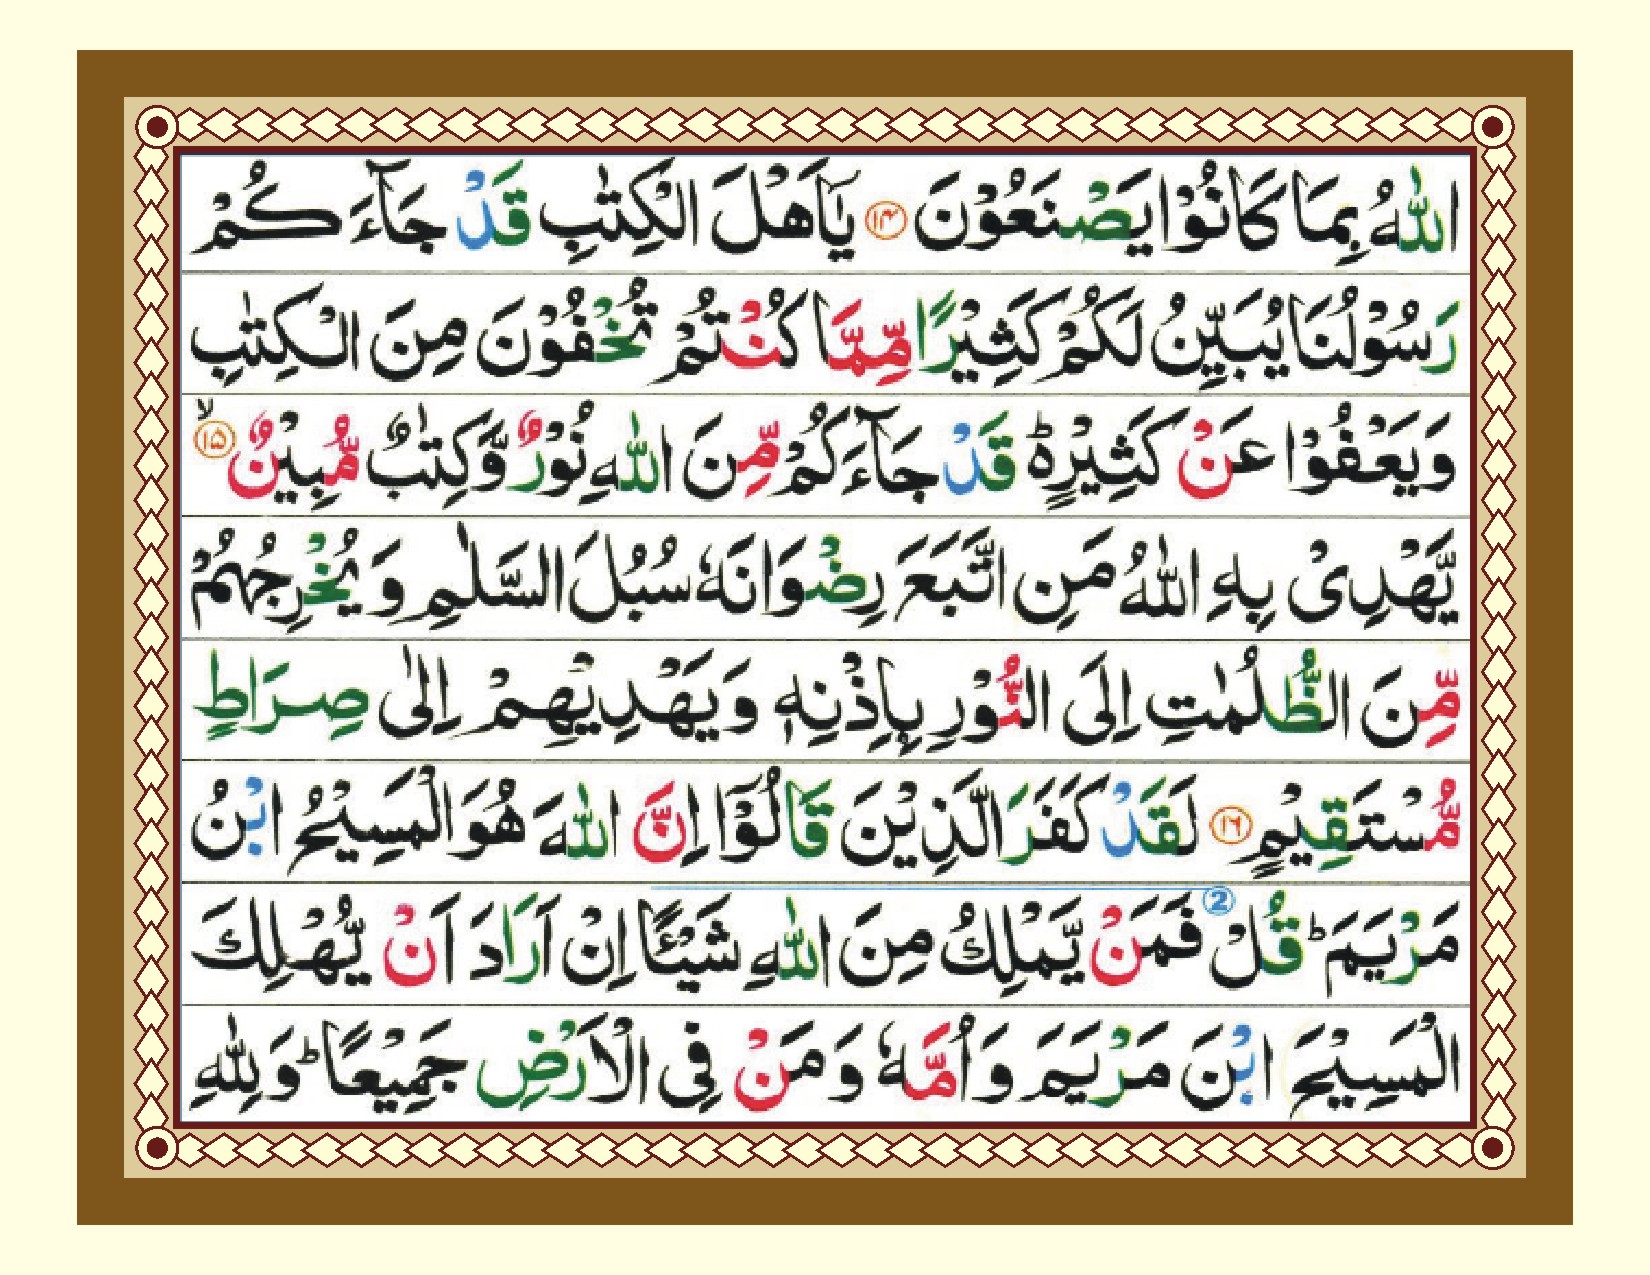 اللّٰهُ بِمَا كَانُوْا يَصْنَعُوْنَ ﴿۱۴﴾ يٰۤاَهْلَ الْكِتٰبِ قَدْ جَآءَكُمْ
رَسُوْلُنَا يُبَيِّنُ لَكُمْ كَثِيْرًا مِّمَّا كُنْتُمْ تُخْفُوْنَ مِنَ الْكِتٰبِ
وَيَعْفُوْا عَنْ كَثِيْرٍ ۬ؕ قَدْ جَآءَكُمْ مِّنَ اللّٰهِ نُوْرٌ وَّكِتٰبٌ مُّبِيْنٌ ۙ﴿۱۵﴾
يَّهْدِىْ بِهِ اللّٰهُ مَنِ اتَّبَعَ رِضْوَانَهٗ سُبُلَ السَّلٰمِ وَيُخْرِجُهُمْ
مِّنَ الظُّلُمٰتِ اِلَى النُّوْرِ بِاِذْنِهٖ وَيَهْدِيْهِمْ اِلٰى صِرَاطٍ
مُّسْتَقِيْمٍ ﴿۱۶﴾ لَقَدْ كَفَرَ الَّذِيْنَ قَالُوْۤا اِنَّ اللّٰهَ هُوَ الْمَسِيْحُ ابْنُ
مَرْيَمَ ؕ قُلْ فَمَنْ يَّمْلِكُ مِنَ اللّٰهِ شَيْـًٔا اِنْ اَرَادَ اَنْ يُّهْلِكَ
الْمَسِيْحَ ابْنَ مَرْيَمَ وَاُمَّهٗ وَمَنْ فِى الْاَرْضِ جَمِيْعًا ؕ وَلِلّٰهِ